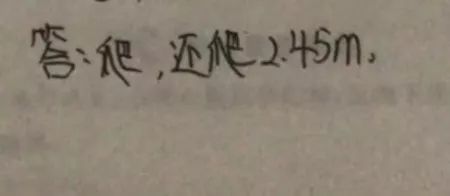 答:爬,还爬2.45m。